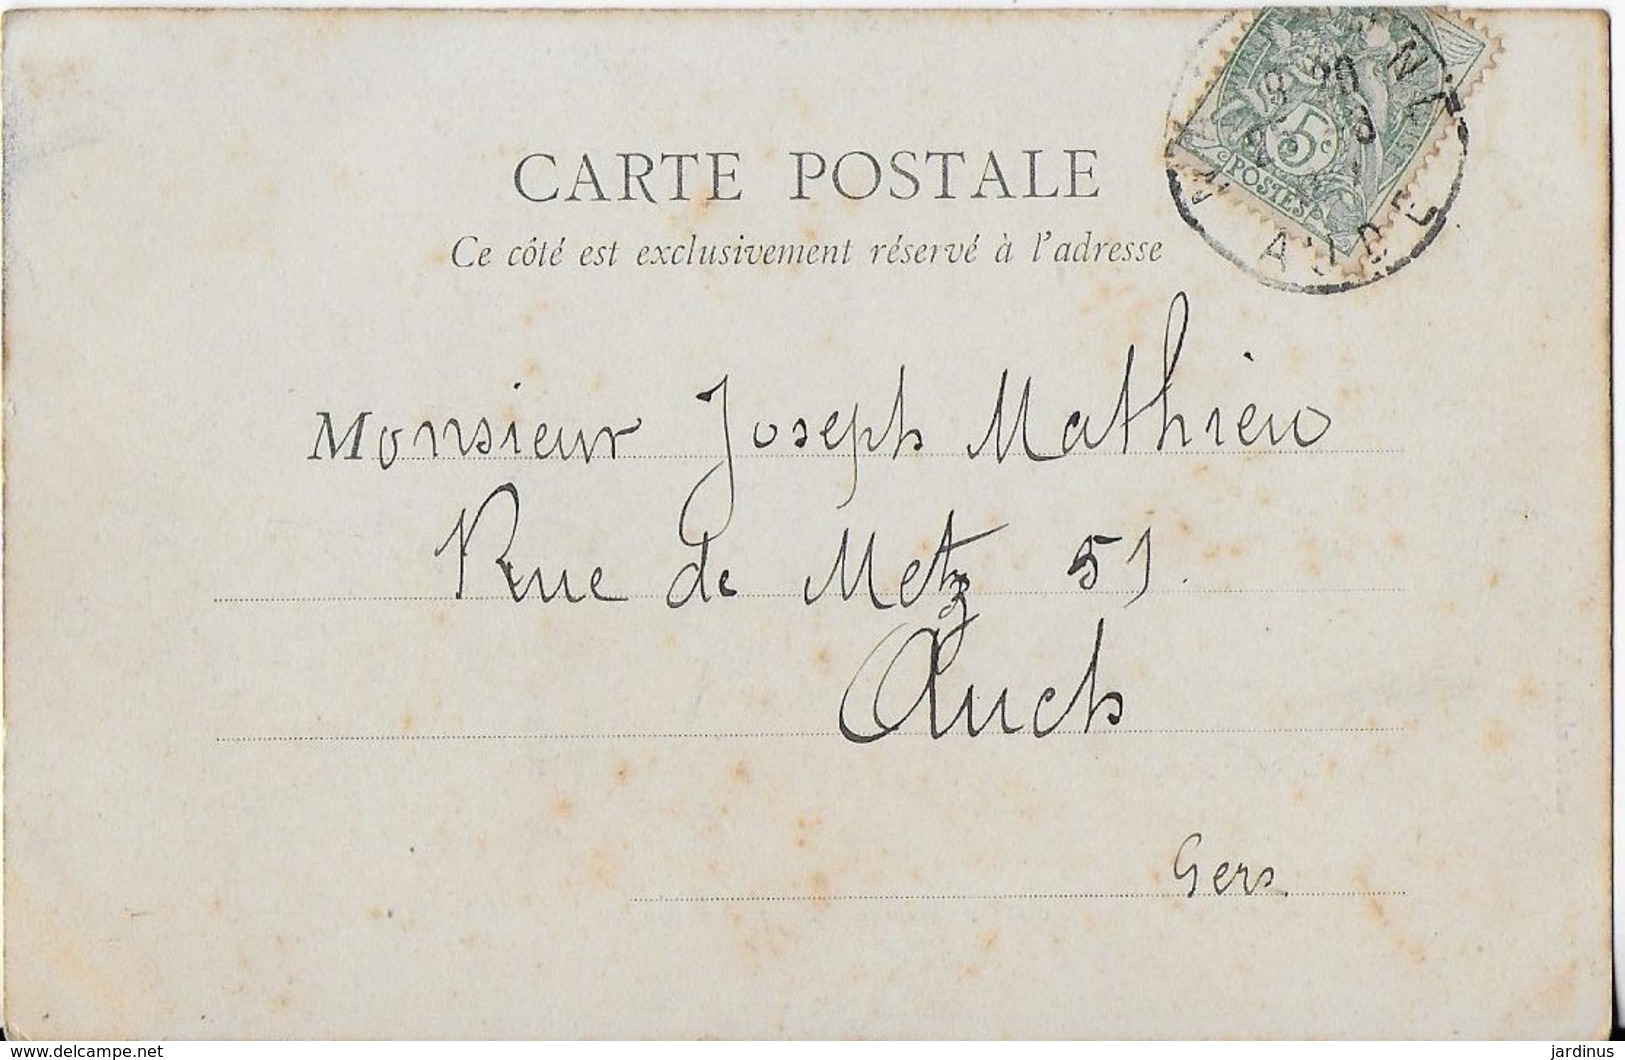 CARTE POSTALE
Ce côté est exclusivement réservé à l'adresse
5c
POSTES
AUDE
Monsieur Joseph Mathieu
Rue de Metz 51.
Auch
Gers
www.delcampe.net
jardinus